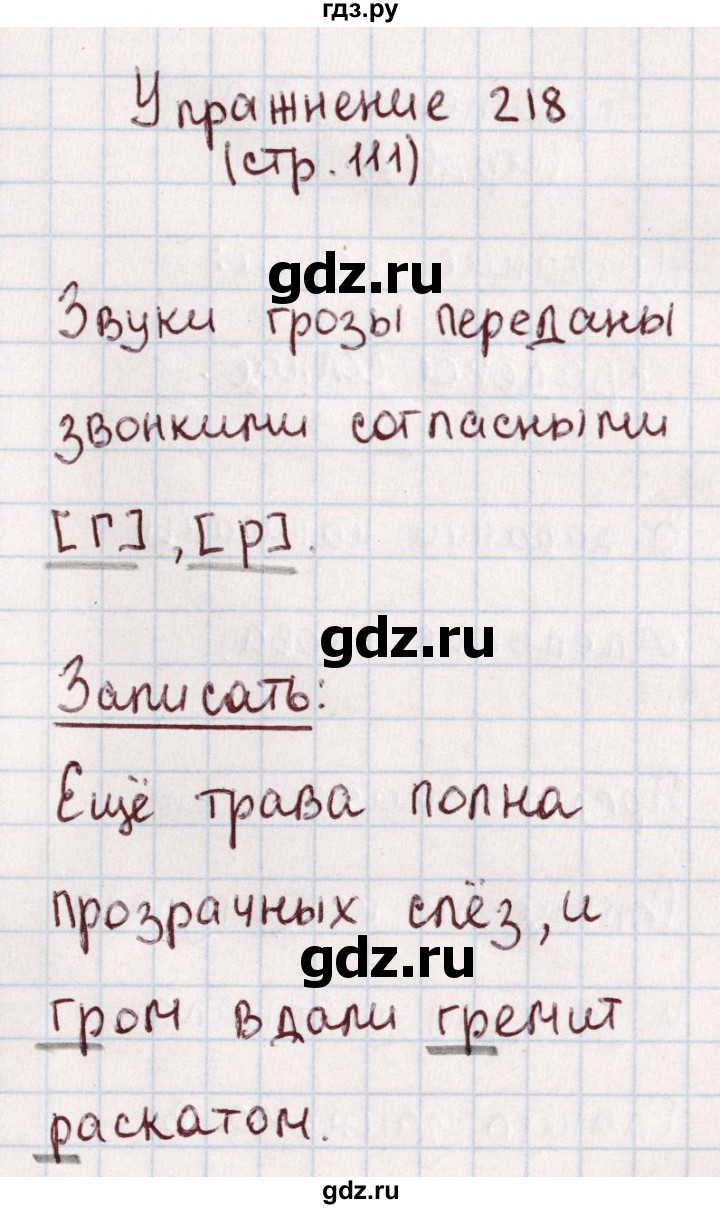 гдз.ру
Упражнение 218
(стр. 111)
gdz.ru
Звуки грозы переданы
звонкими согласными
[г], [р].
gdz.ru
Записать:
Ещё трава полна
прозрачных слёз, и
gdz.ru
гром вдали гремит
раскатом.
gdz.ru